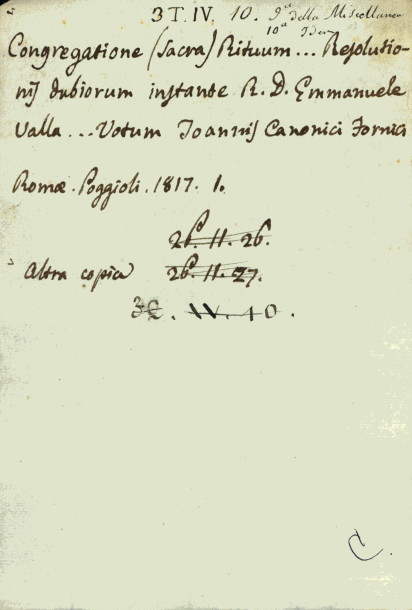 3 T. IV. 10. 9ª della Miscellanea
10ª Idem
Congregatione (Sacra) Rituum... Resolutio-
nis dubiorum instante R. D. Emmanuele
Valla... Votum Joannis Canonici Fornici
Romæ. Poggioli. 1817. 1.
26. 11. 26.
Altra copia 26. 11. 27.
3C. IV. 10.
C.